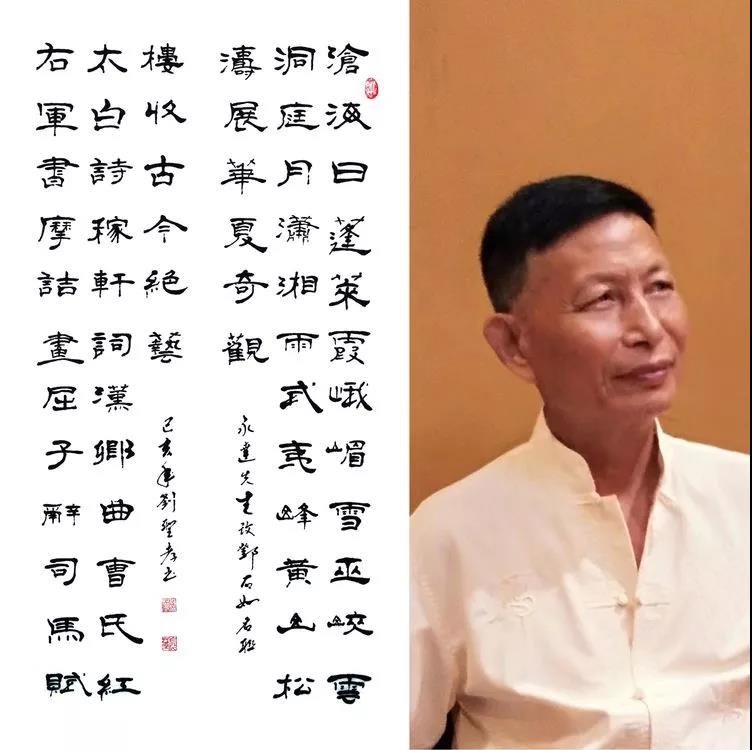 滄海日蓬萊霞峨嵋雪巫峽雲
洞庭月瀟湘雨武夷峰黃山松
濤展華夏奇觀
永先生改鄧石如名聯
右軍書摩詰畫屈子辭司馬賦
太白詩稼軒詞漢卿曲曹氏紅
樓收古今絕藝
己亥年劉聖孝書